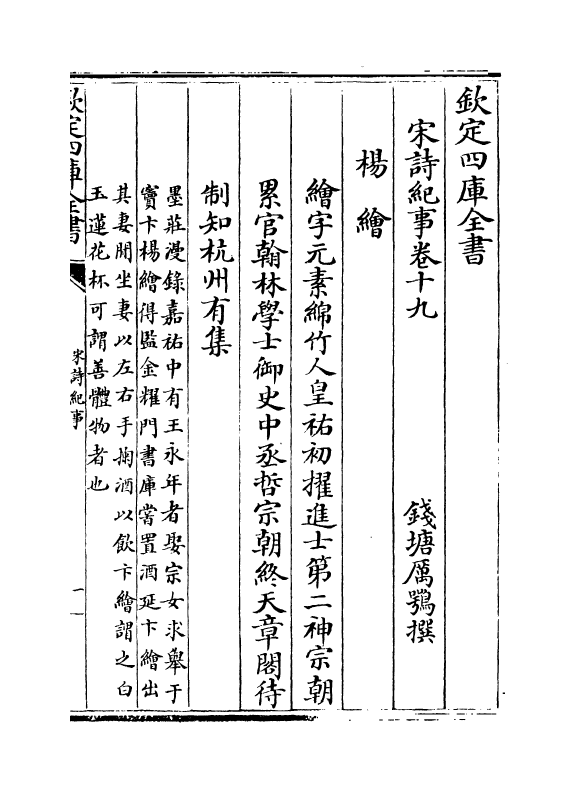 欽定四庫全書
宋詩紀事卷十九
錢塘厲鶚撰
楊繪
繪字元素綿竹人皇祐初擢進士第二神宗朝
累官翰林學士御史中丞哲宗朝終天章閣待
制知杭州有集
墨莊漫錄嘉祐中有王永年者娶宗女求舉于
竇卞楊繪得監金耀門書庫嘗置酒延卞繪出
其妻閒坐妻以左右手掬酒以飲卞繪謂之白
玉蓮花杯可謂善體物者也
欽定四庫全書
宋詩紀事
一